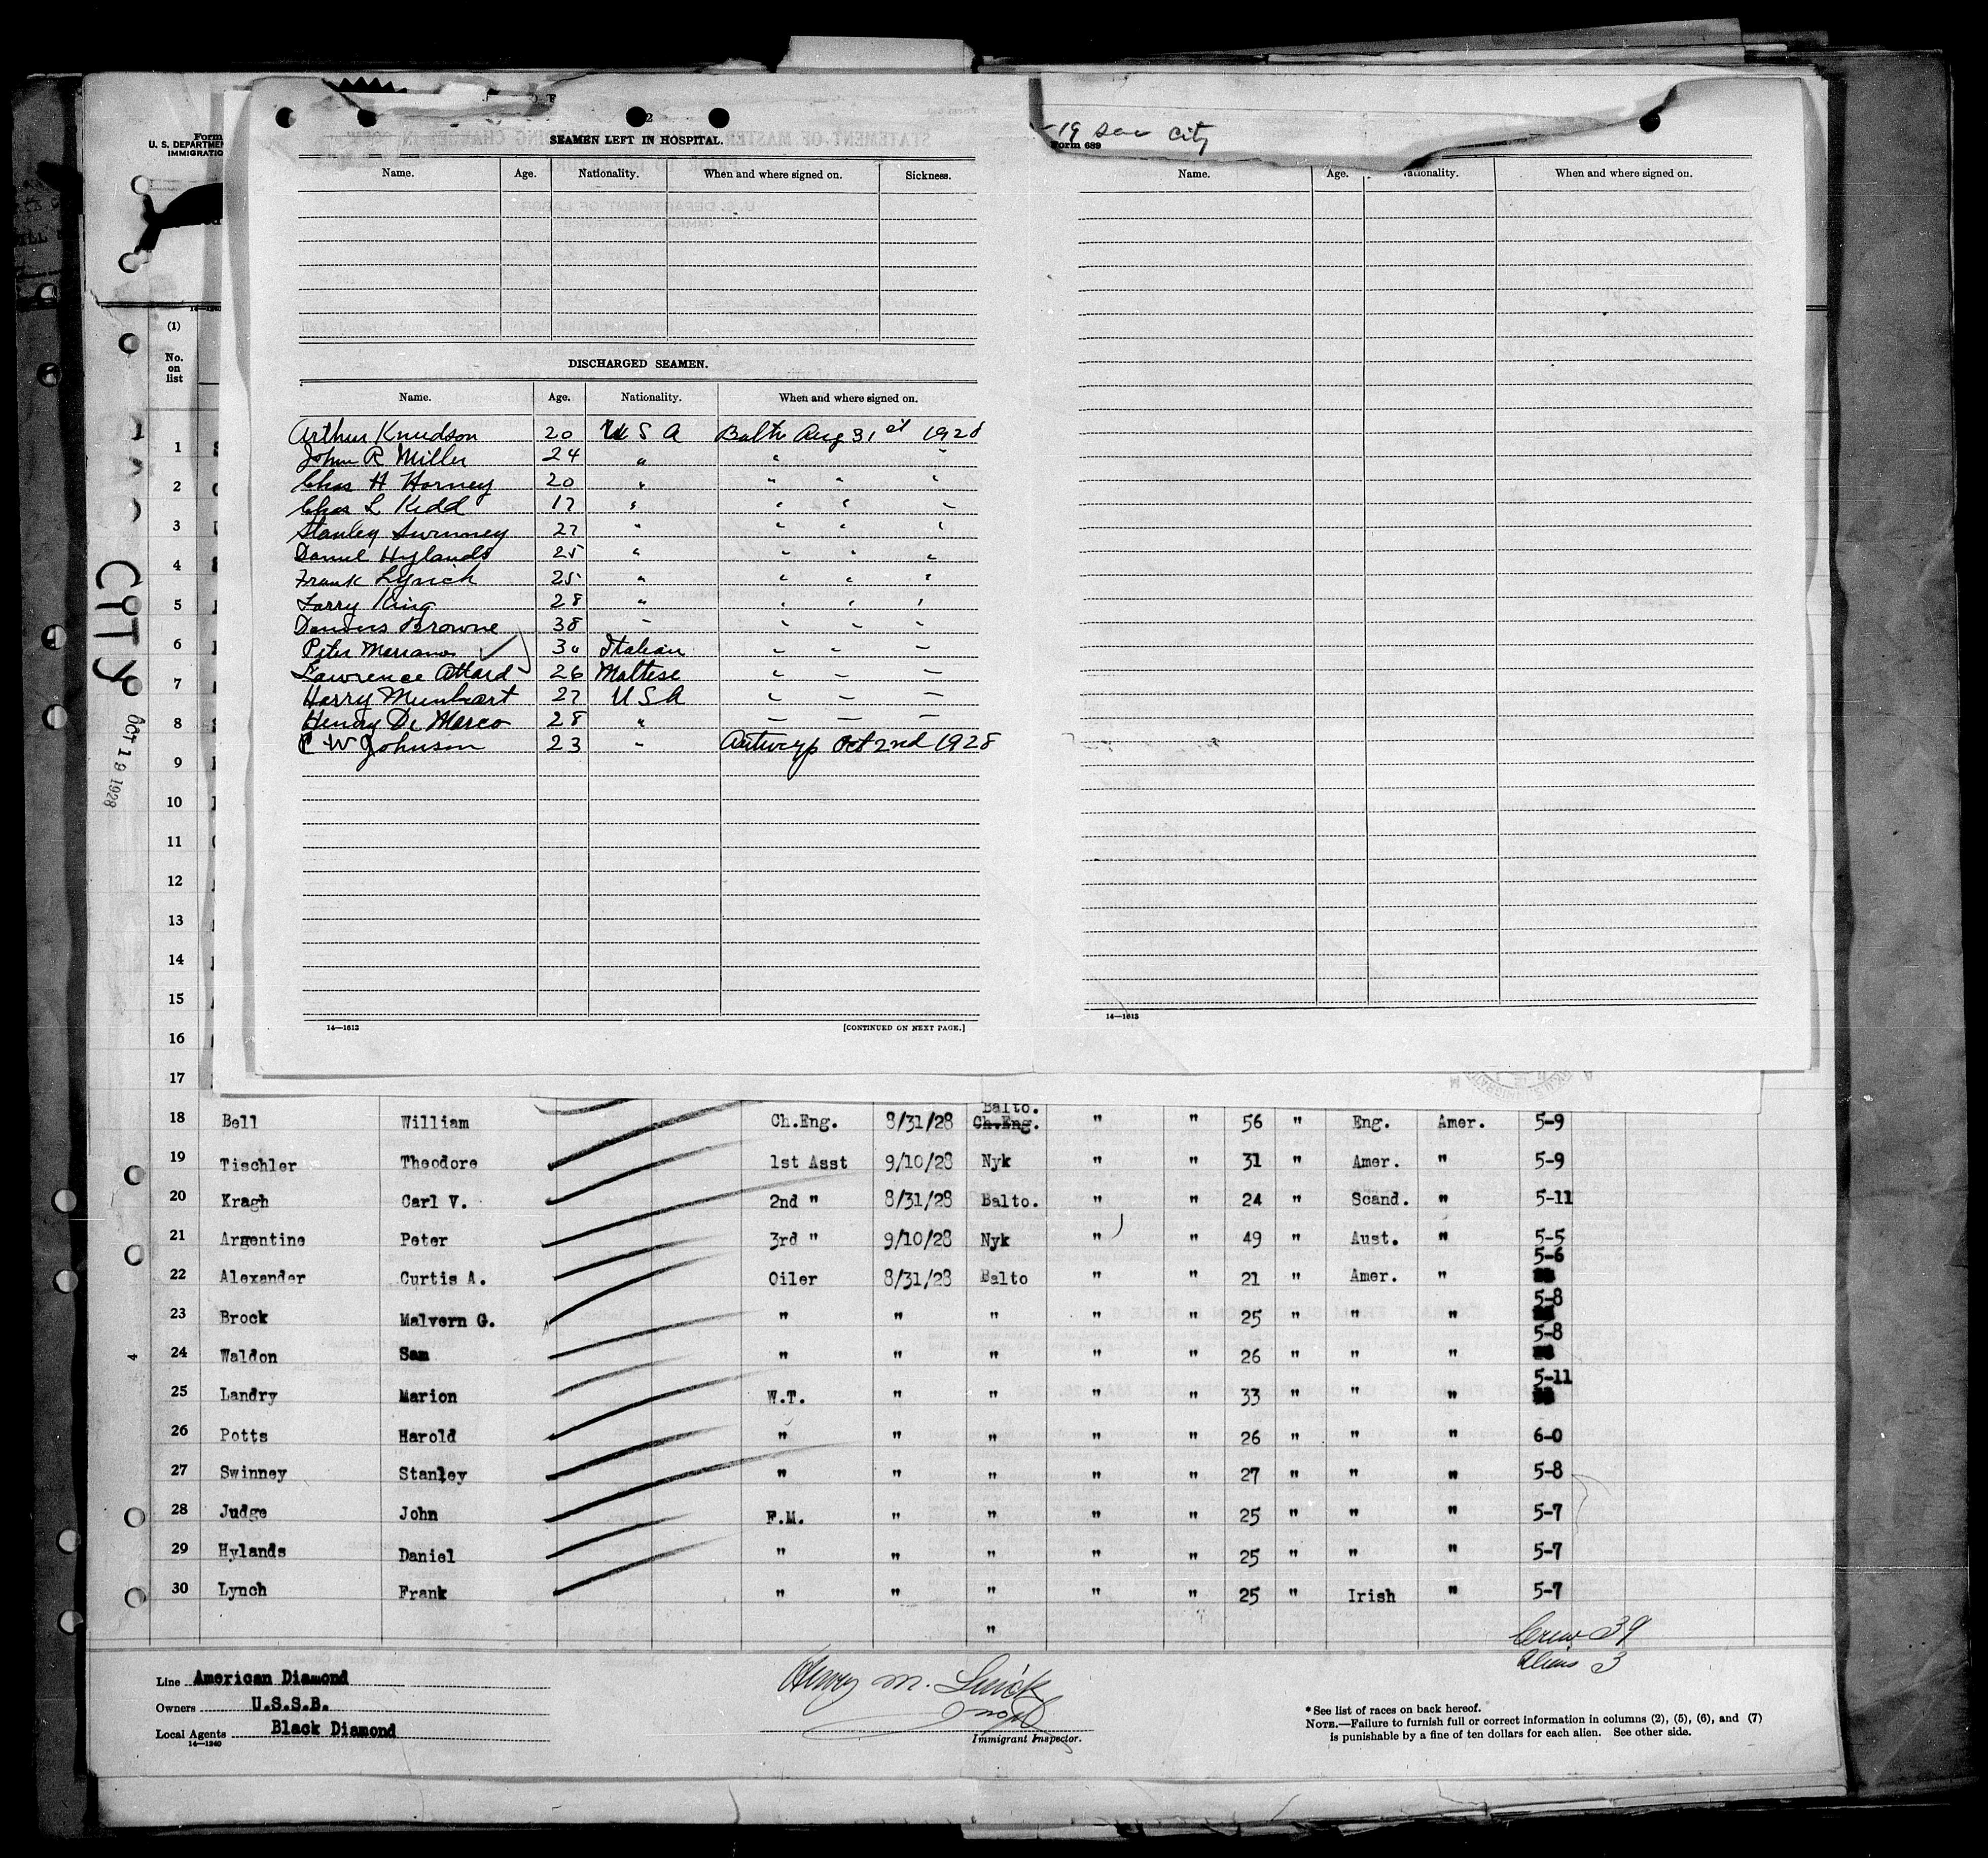 Form
U. S. DEPARTMEN
IMMIGRATIO
2
SEAMEN LEFT IN HOSPITAL.
Name. Age. Nationality. When and where signed on. Sickness.
DISCHARGED SEAMEN.
Name. Age. Nationality. When and where signed on.
Arthur Knudson 20 U S A Balto Aug 31 st 1928
John R Miller 24 " " "
Chas H Horney 20 " " " "
Chas L Kidd 17 " " " "
Stanley Swinney 27 " " " "
Daniel Hylands 25 " " " "
Frank Lynch 25 " " " "
Larry King 28 " " " "
Dennis Browne 38 " " " "
Peter 30 Italian " " "
Lawrence Attard 26 Maltese " " "
Harry Munhart 27 U S A " " "
Henry De Marco 28 " " " "
C W Johnson 23 " Antwerp Oct 2nd 1928
14—1613 [CONTINUED ON NEXT PAGE.]
19 City
Form 689
Name. Age. ationality. When and where signed on.
14—1613
CITY
OCT 19 1928
(1)
No.
on
list
1
2
3
4
5
6
7
8
9
10
11
12
13
14
15
16
17
18 Bell William Ch.Eng. 8/31/28 Balto. Ch.Eng. " " 56 " Eng. Amer. 5-9
19 Tischler Theodore 1st Asst 9/10/28 Nyk " " 31 " Amer. " 5-9
20 Kragh Carl V. 2nd " 8/31/28 Balto. " " 24 " Scand. " 5-11
21 Argentine Peter 3rd " 9/10/28 Nyk " " 49 " Aust. " 5-5
22 Alexander Curtis A. Oiler 8/31/28 Balto " " 21 " Amer. " 5-6
23 Brock Malvern G. " " " " " 25 " " " 5-8
24 Waldon Sam " " " " " 26 " " " 5-8
25 Landry Marion W.T. " " " " 33 " " " 5-11
26 Potts Harold " " " " " 26 " " " 6-0
27 Swinney Stanley " " " " " 27 " " " 5-8
28 Judge John F.M. " " " " 25 " " " 5-7
29 Hylands Daniel " " " " " 25 " " " 5-7
30 Lynch Frank " " " " " 25 " Irish " 5-7
"
Crew 39
Aliens 3
Line American Diamond
Owners U.S.S.B.
Local Agents Black Diamond
14—1240
Henry M.
Immigrant Inspector.
*See list of races on back hereof.
NOTE.—Failure to furnish full or correct information in columns (2), (5), (6), and (7)
is punishable by a fine of ten dollars for each alien. See other side.